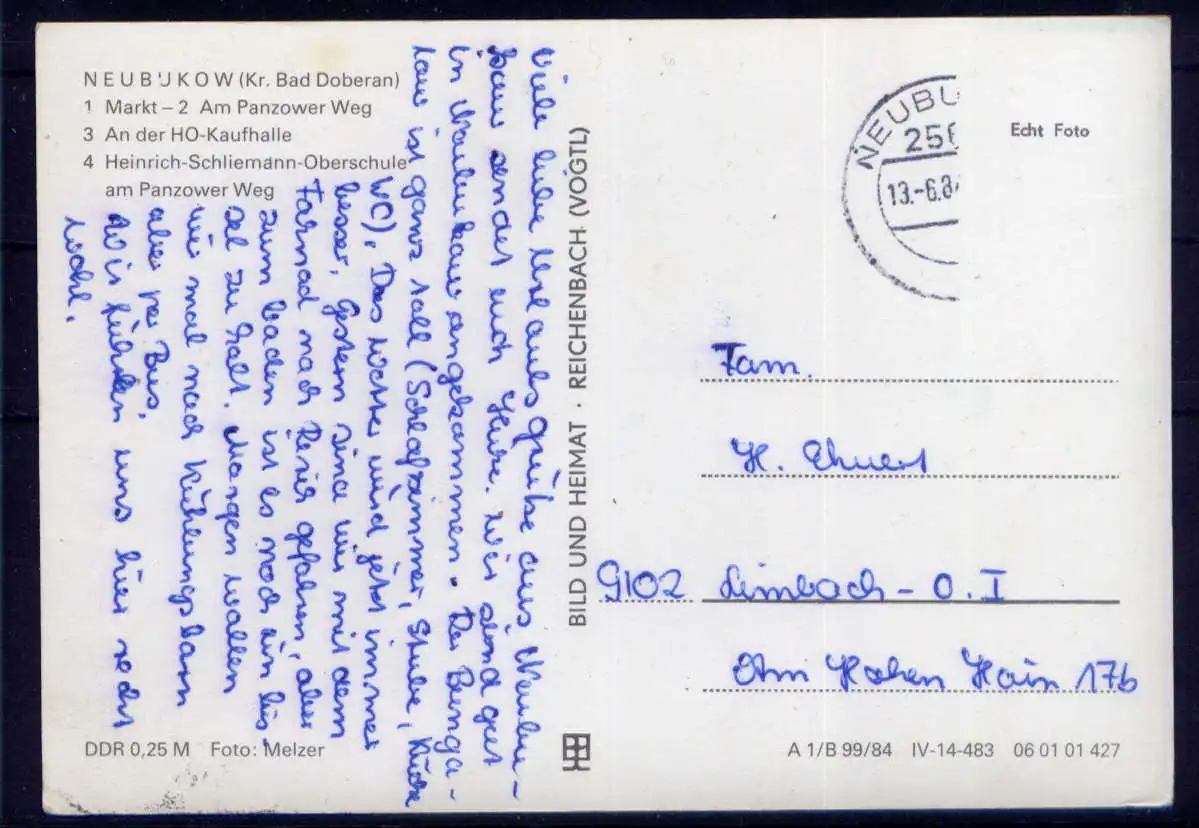 NEUBUKOW (Kr. Bad Doberan)
1 Markt – 2 Am Panzower Weg
3 An der HO-Kaufhalle
4 Heinrich-Schliemann-Oberschule
am Panzower Weg
Viele liebe Urlaubsgrüße aus Neubu-
kow sendet euch wir sind gut
in Neubukow angekommen. Der Bunga-
low ist ganz toll (Schlafzimmer, Stube, Küche
WC). Das Wetter wird jetzt immer
besser. Gestern sind wir mit dem
Farrad nach Rerik gefahren, aber
zum baden ist es noch ein bis-
sel zu kalt. Morgen wollen
wir mal nach Kühlungsborn
aber per Bus.
Wir fühlen uns hier recht
wohl.
BILD UND HEIMAT · REICHENBACH (VOGTL)
NEUBU
256
13.-6.8
Echt Foto
Fam.
H. Ehnert
9102 Limbach - O. I
Am Hohen Hain 17b
DDR 0,25 M Foto: Melzer
A 1/B 99/84 IV-14-483 06 01 01 427